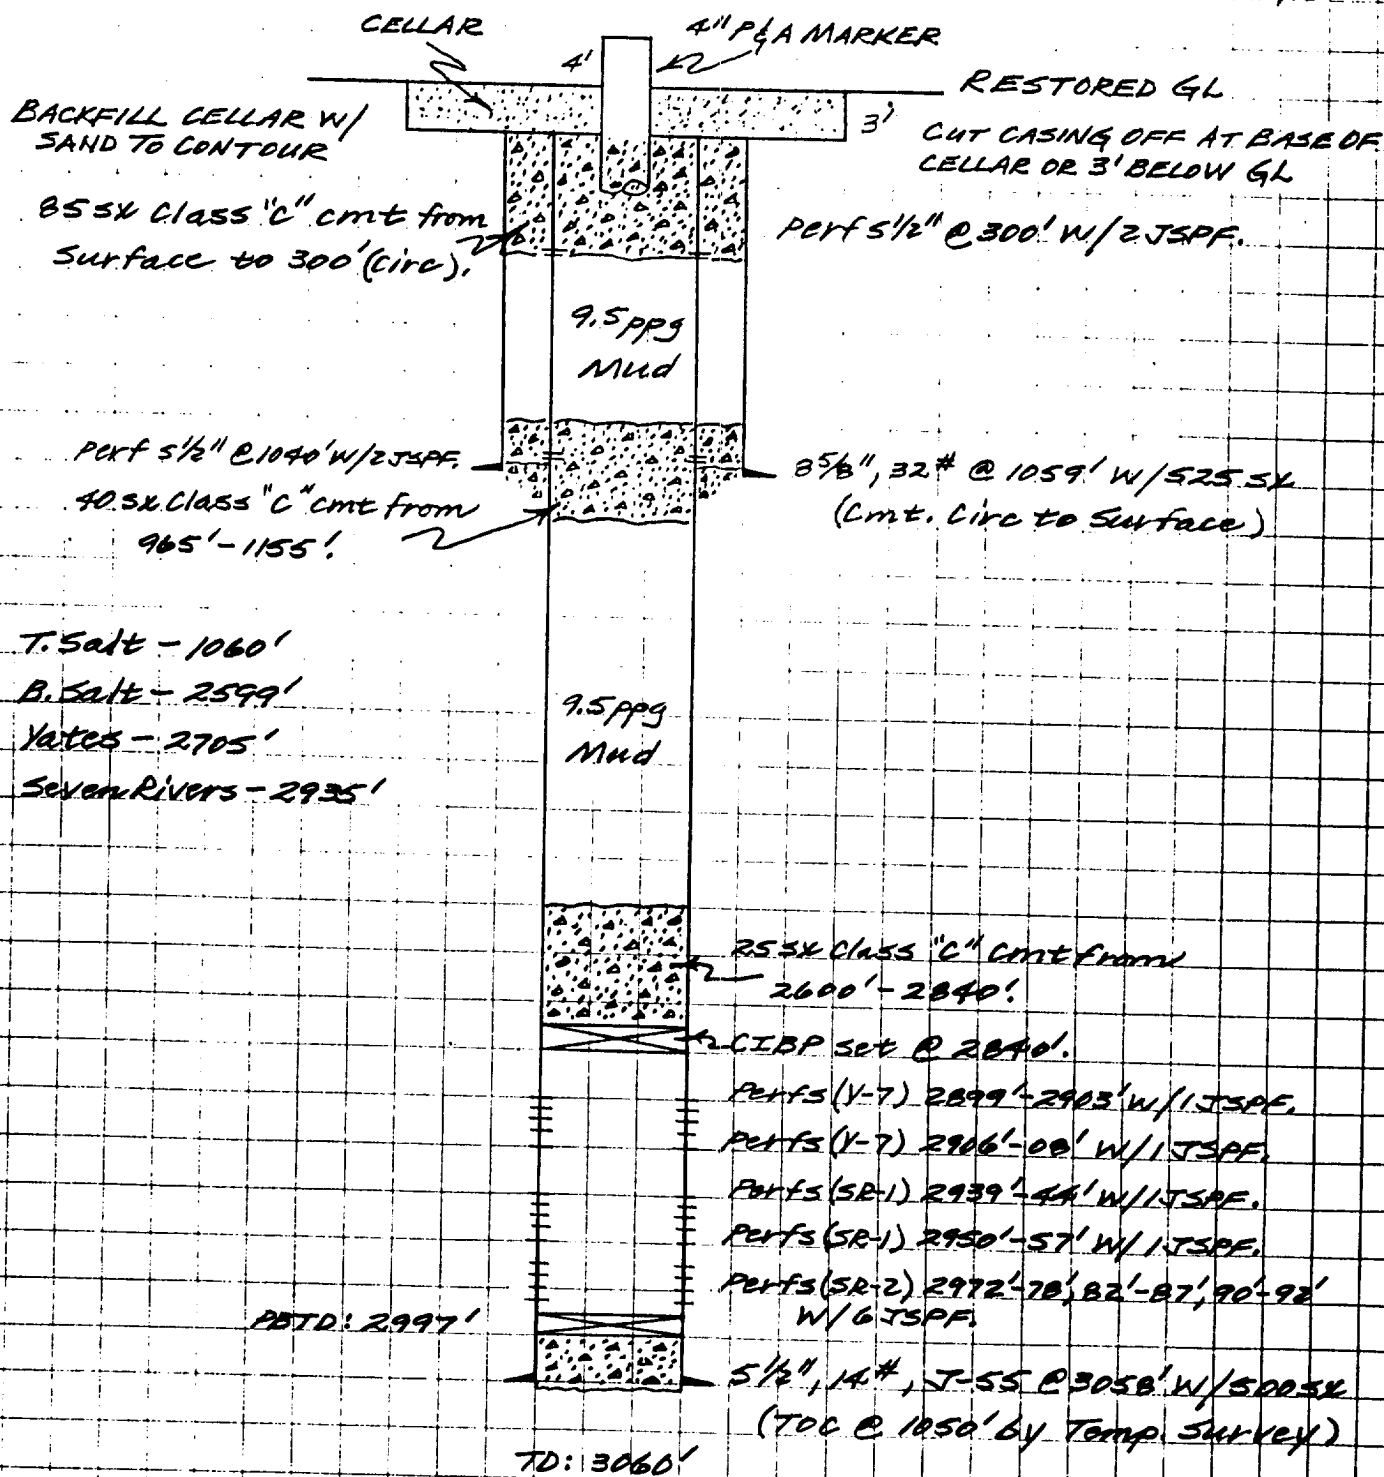 CELLAR
4" P&A MARKER
4'
RESTORED GL
BACKFILL CELLAR W/
SAND TO CONTOUR
3'
CUT CASING OFF AT BASE OF
CELLAR OR 3' BELOW GL
85 sx Class "C" cmt from
Surface to 300' (circ).
Perf 5½" @ 300' W/2 JSPF.
9.5 ppg
Mud
Perf 5½" @ 1040' W/2 JSPF.
40 sx Class "C" cmt from
965'-1155'.
8⅝", 32# @ 1059' W/525 sx
(Cmt. Circ to Surface)
T. Salt - 1060'
B. Salt - 2599'
Yates - 2705'
Seven Rivers - 2935'
9.5 ppg
Mud
25 sx Class "C" Cmt from
2600'-2840'.
CIBP set @ 2840'.
Perfs (Y-7) 2899'-2903' W/1 JSPF.
Perfs (Y-7) 2906'-08' W/1 JSPF.
Perfs (SR-1) 2939'-44' W/1 JSPF.
Perfs (SR-1) 2950'-57' W/1 JSPF.
Perfs (SR-2) 2972'-78', 82'-87', 90'-92'
W/6 JSPF.
PBTD: 2997'
5½", 14#, J-55 @ 3058' W/500 sx
(TOC @ 1050' by Temp. Survey)
TD: 3060'